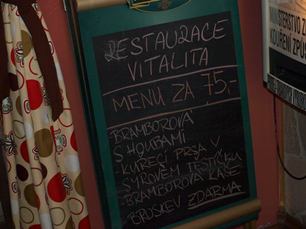 RESTAURACE
VITALITA
MENU ZA 75,-
BRAMBOROVÁ
S HOUBAMI
- KUŘECÍ PRSA V
SÝROVÉM TROJÍČKU
- BRAMBOROVÁ KAŠE
- BROSKEV ZDARMA